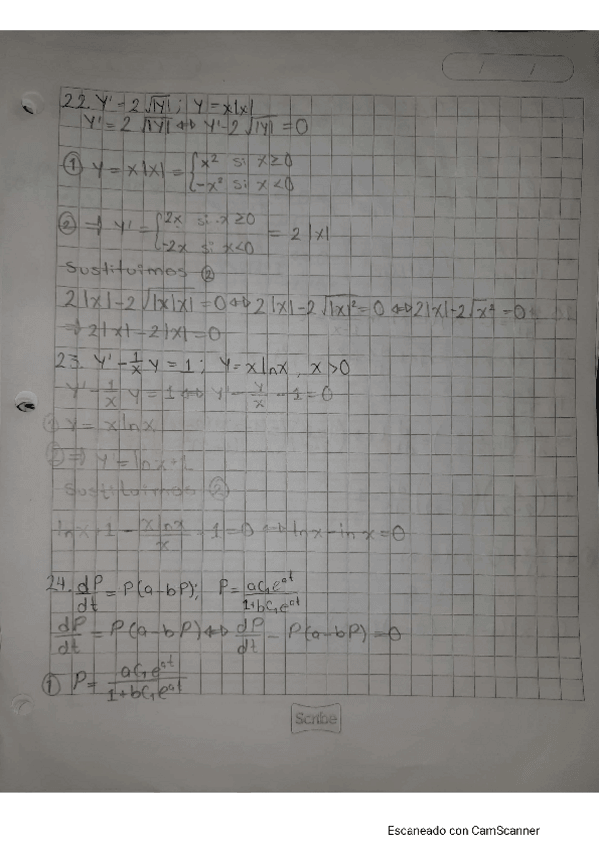 22. Y' - 2 √|Y| ; Y = x|x|
Y' = 2 √|Y| ⇔ Y' - 2 √|Y| = 0
① Y = x|x| = { x² si x ≥ 0
-x² si x < 0
② ⇒ Y' = { 2x si x ≥ 0
-2x si x < 0 = 2|x|
Sustituimos ②
2|x| - 2√|x|x|| = 0 ⇔ 2|x| - 2√|x|² = 0 ⇔ 2|x| - 2√x² = 0
⇒ 2|x| - 2|x| = 0
23. Y' - 1/x Y = 1 ; Y = x lnx, x > 0
Y' - 1/x Y = 1 ⇔ Y' - Y/x - 1 = 0
① Y = x lnx
② ⇒ Y' = lnx + 1
Sustituimos ②
lnx + 1 - x lnx/x - 1 = 0 ⇔ lnx - lnx = 0
24. dP/dt = P(a - bP); P = aC₁e^at/1+bC₁e^at
dP/dt = P(a - bP) ⇔ dP/dt - P(a - bP) = 0
① P = aC₁e^at/1+bC₁e^at
Scribe
Escaneado con CamScanner